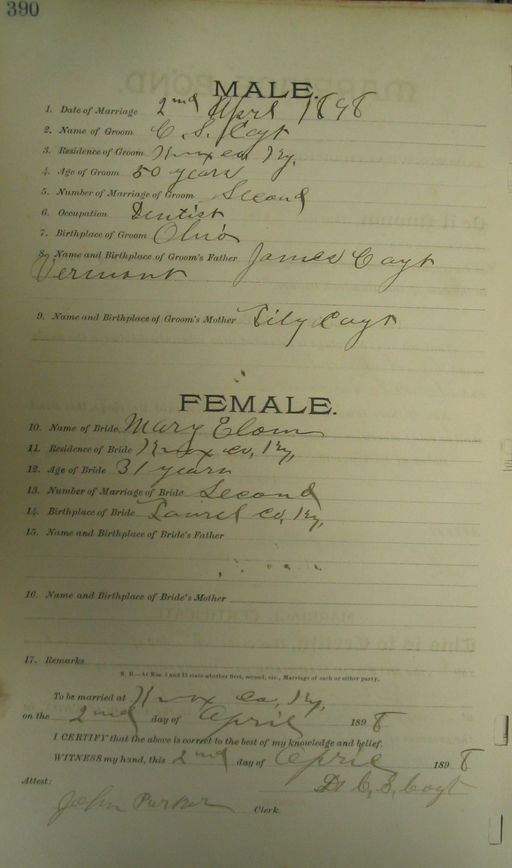 390
MALE.
1. Date of Marriage 2nd April 1898
2. Name of Groom C. S. Coyt
3. Residence of Groom Knox co, Ky,
4. Age of Groom 50 years
5. Number of Marriage of Groom Second
6. Occupation Dentist
7. Birthplace of Groom Ohio
8. Name and Birthplace of Groom's Father James Coyt
Vermont
9. Name and Birthplace of Groom's Mother Lily Coyt
FEMALE.
10. Name of Bride Mary Elom
11. Residence of Bride Knox co, Ky,
12. Age of Bride 31 years
13. Number of Marriage of Bride Second
14. Birthplace of Bride Laurel co, Ky,
15. Name and Birthplace of Bride's Father
16. Name and Birthplace of Bride's Mother
17. Remarks
N. B.—At Nos. 5 and 13 state whether first, second, etc., Marriage of each or either party.
To be married at Knox Co, Ky,
on the 2nd day of April 1898
I CERTIFY that the above is correct to the best of my knowledge and belief.
WITNESS my hand, this 2nd day of April 1898
Dr C, S, Coyt
Attest:
John Parker Clerk.